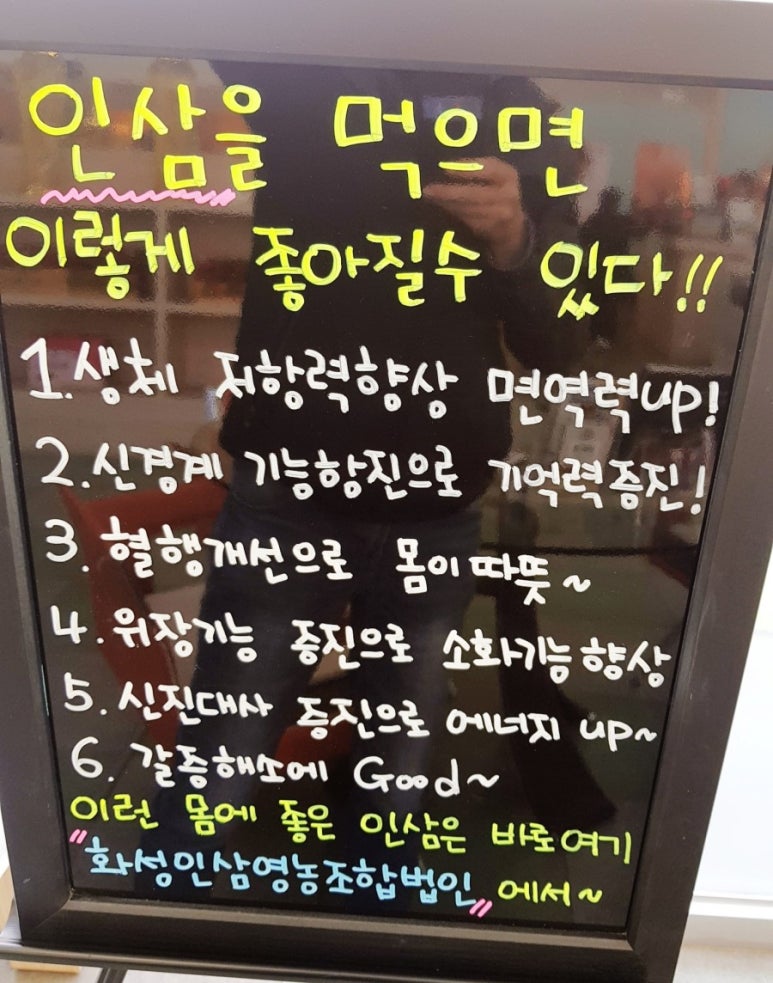 인삼을 먹으면
이렇게 좋아질수 있다!!
1. 생체 저항력향상 면역력up!
2. 신경계 기능항진으로 기억력증진!
3. 혈행개선으로 몸이따뜻~
4. 위장기능 증진으로 소화기능향상
5. 신진대사 증진으로 에너지 up~
6. 갈증해소에 Good~
이런 몸에 좋은 인삼은 바로여기
"화성인삼영농조합법인" 에서~